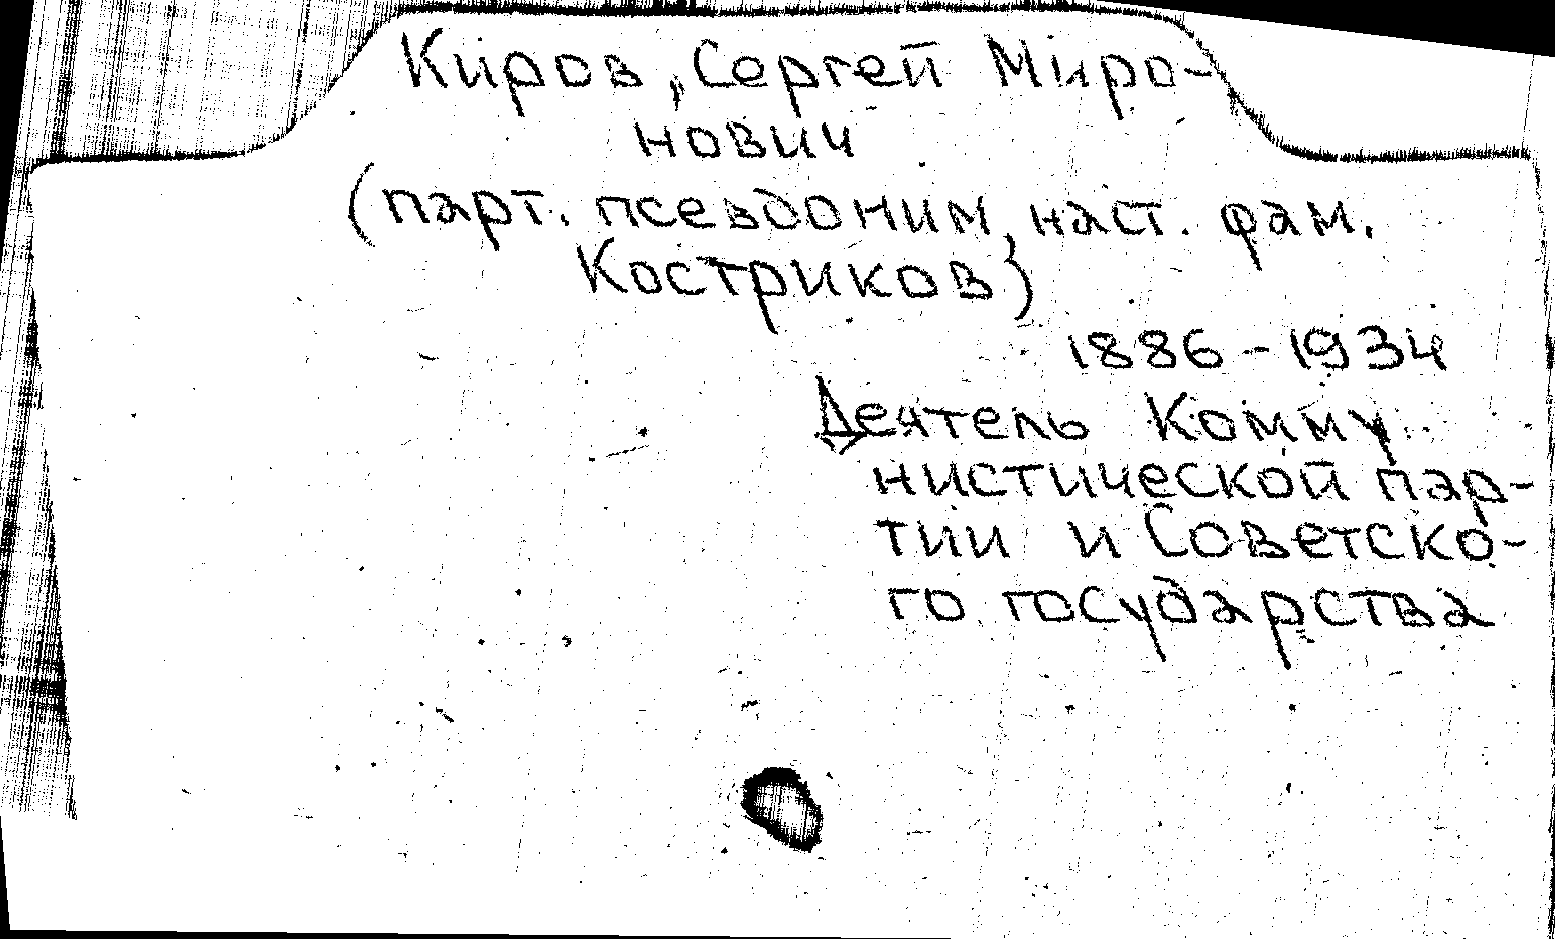 Киров, Сергей Миро-
нович
(парт. псевдоним, наст. фам.
Костриков)
1886-1934
Деятель Комму
нистической пар-
тии и Советско-
го государства